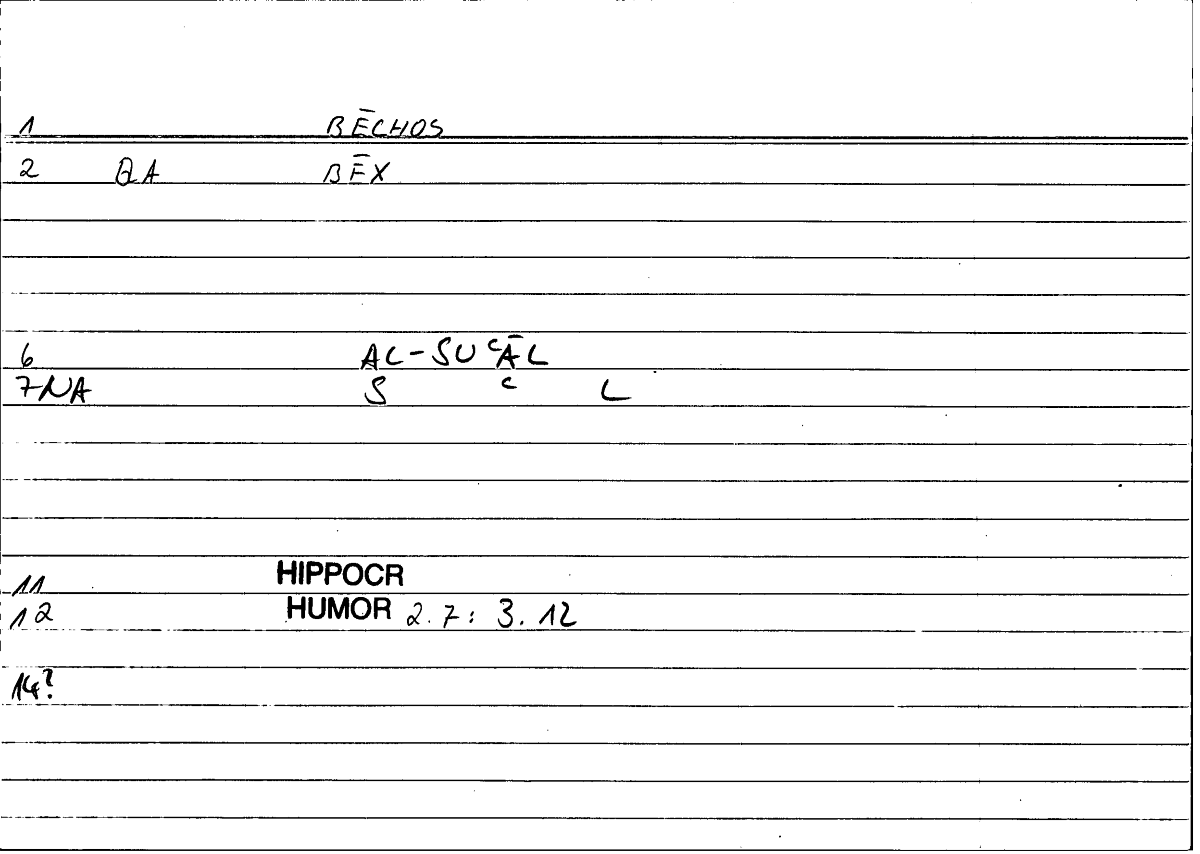 1 BĒCHOS
2 QA BĒX
6 AL-SUʿĀL
7NA S ʿ L
11 HIPPOCR
12 HUMOR 2. 7: 3. 12
14?